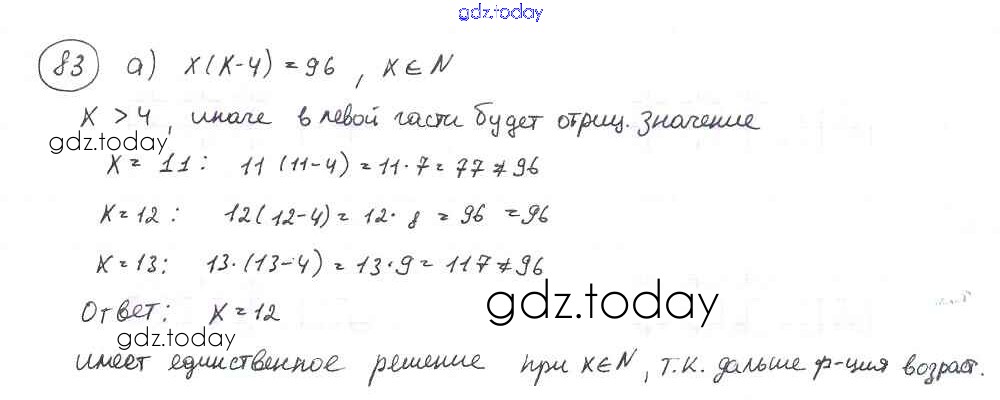 gdz.today
83 а) x(x-4) = 96, x ∈ N
x > 4, иначе в левой части будет отриц. значение
gdz.today
x = 11: 11(11-4) = 11·7 = 77 ≠ 96
x = 12: 12(12-4) = 12·8 = 96 = 96
x = 13: 13·(13-4) = 13·9 = 117 ≠ 96
gdz.today
Ответ: x = 12
gdz.today
имеет единственное решение при x ∈ N, т.к. дальше ф-ция возраст.